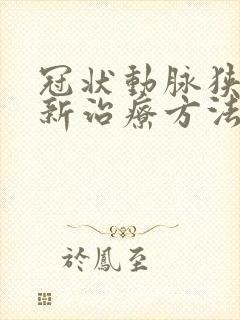 冠狀動脉狹
新治療方法
於鳳至